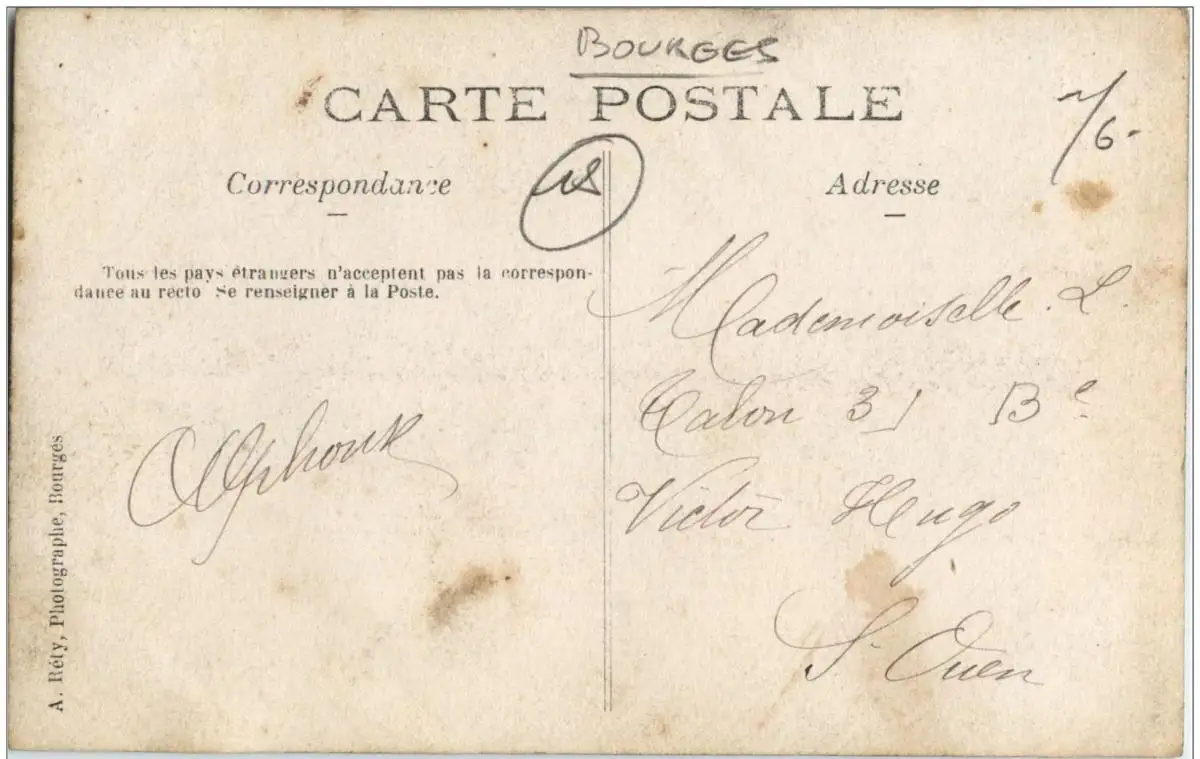 BOURGES
CARTE POSTALE
7/6-
18
Correspondance
Adresse
Tous les pays étrangers n'acceptent pas la correspon-
dance au recto Se renseigner à la Poste.
Mademoiselle. L.
Talon 31 Be
Victor Hugo
St Ouen
Alphonse
A. Réty, Photographe, Bourges